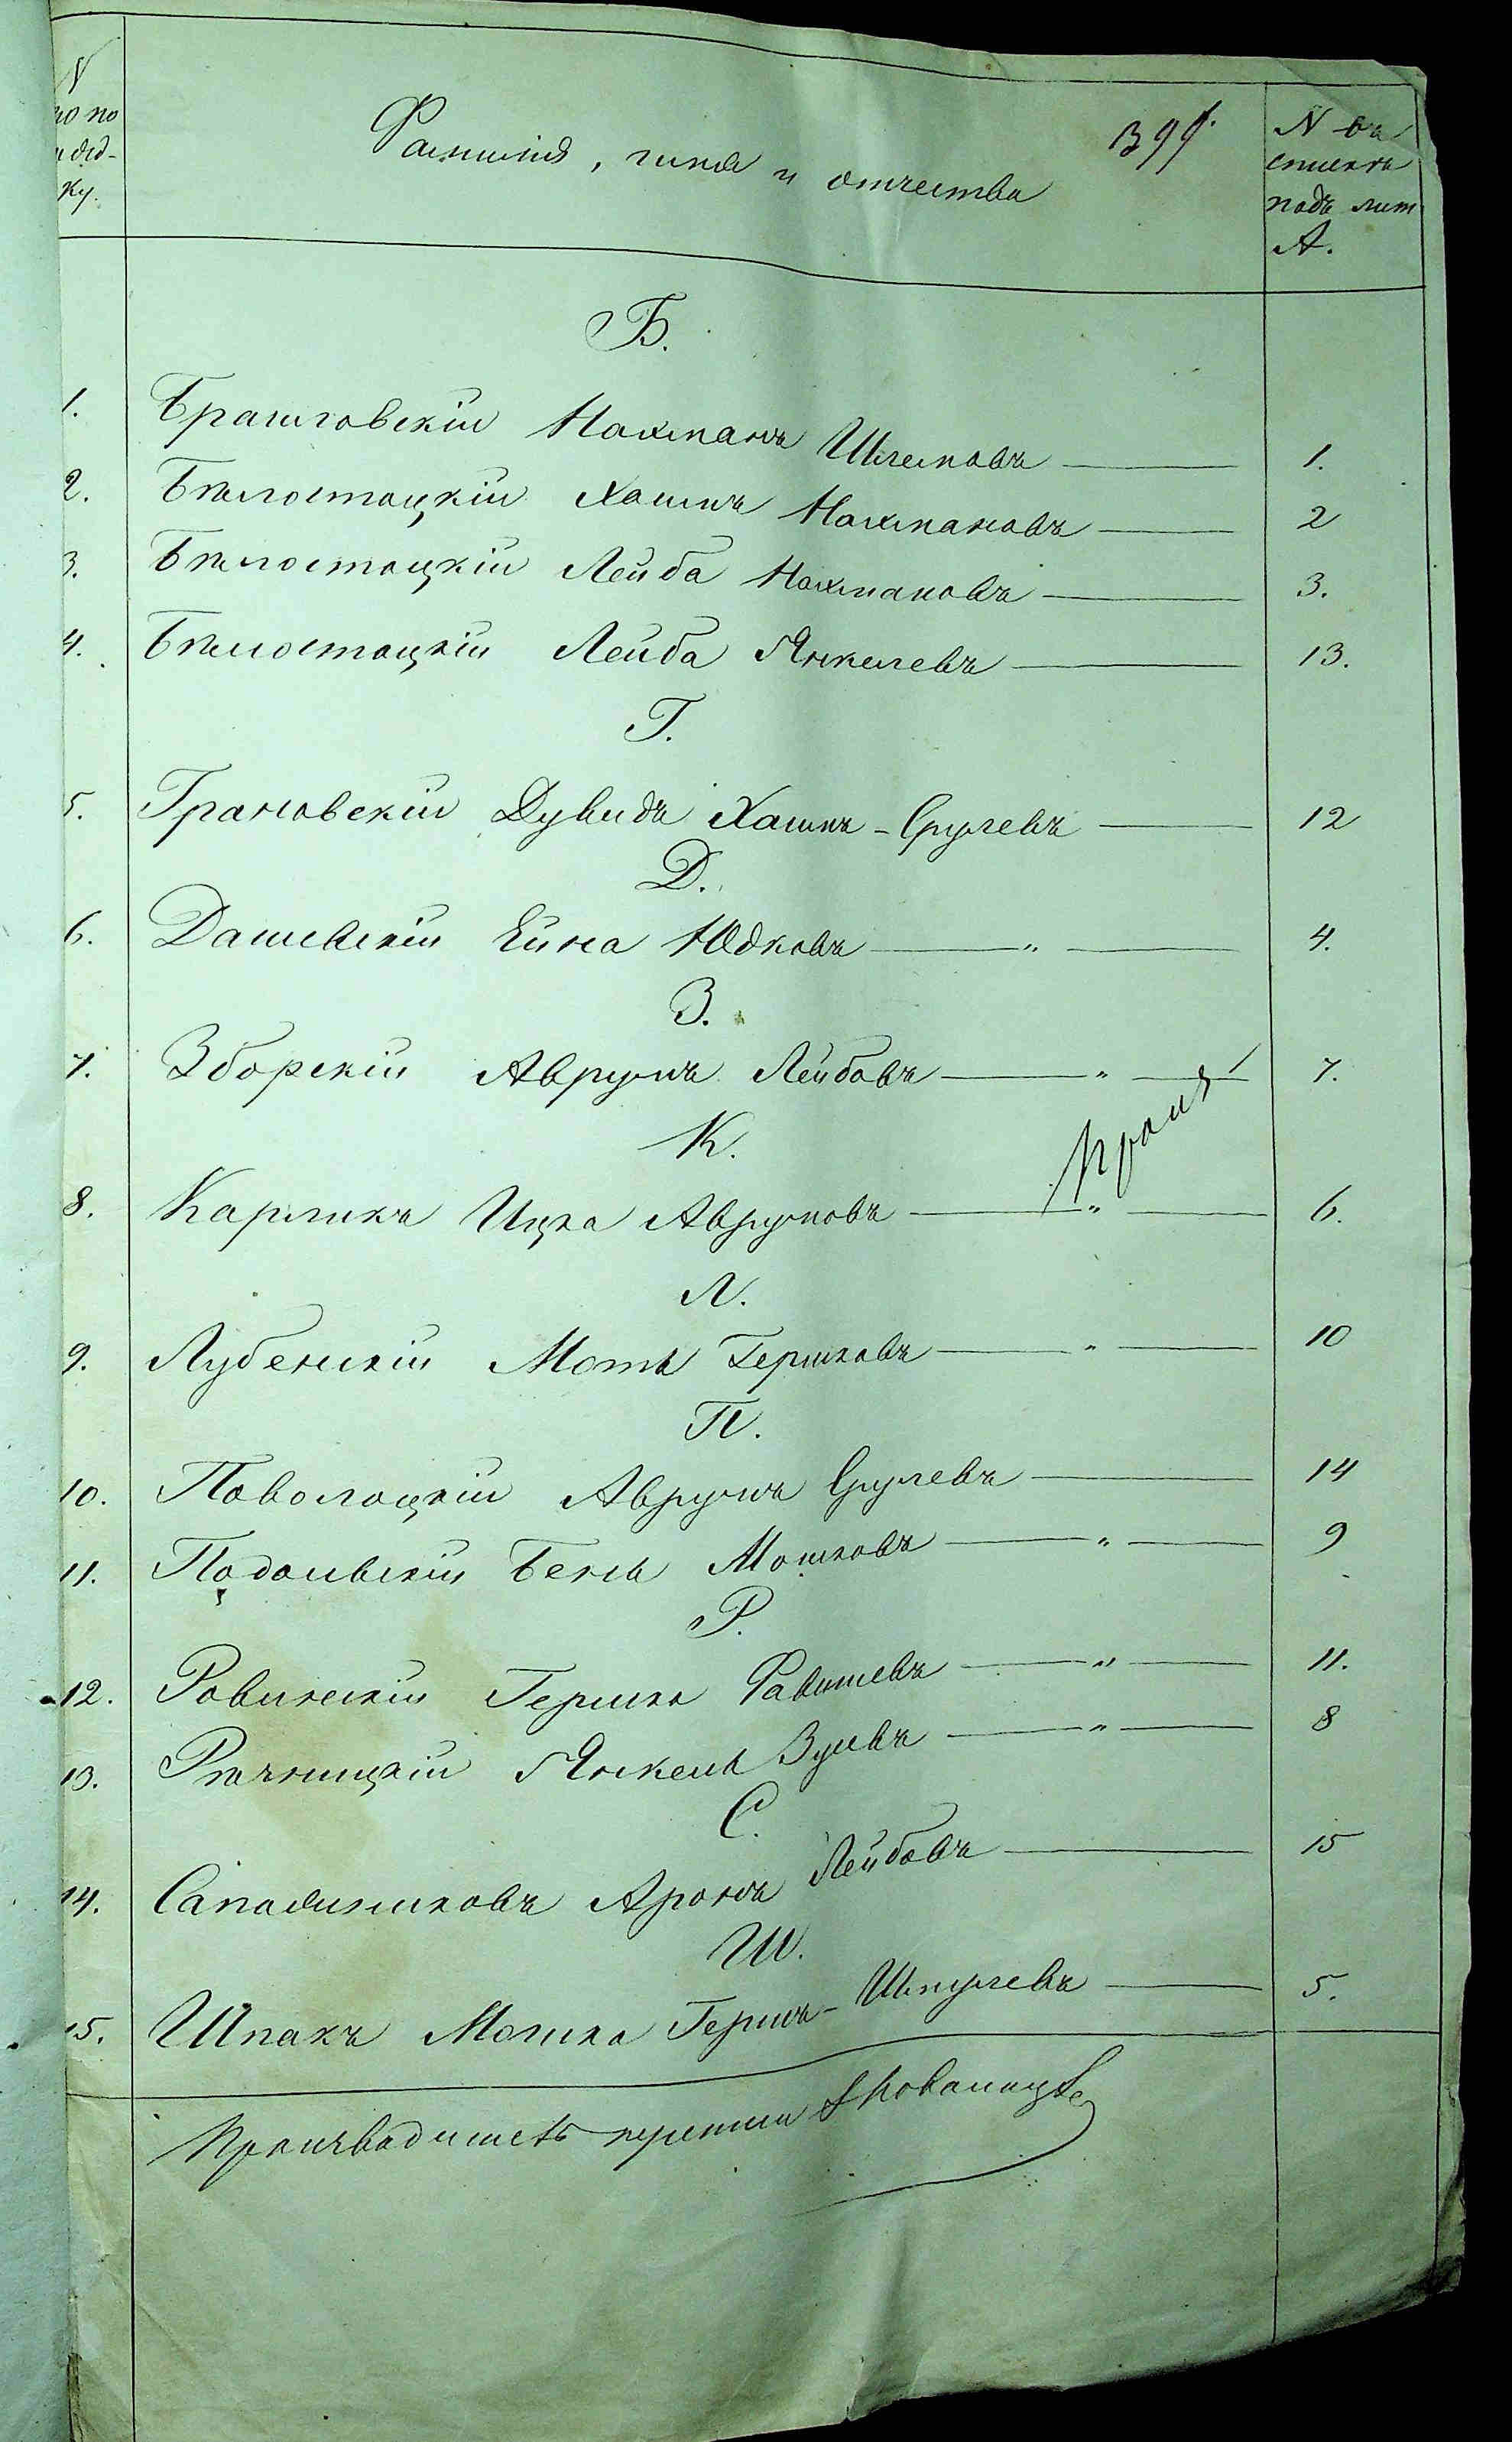 N
по по
ряд-
ку.
Фамилія, имя и отчества
399.
N въ
списке
подъ лит
А.
Б.
1. Брацловскій Нахманъ Шлемовъ 1.
2. Бѣлостоцкій Хаимъ Нахмановъ 2
3. Бѣлостоцкій Лейба Нахмановъ 3.
4. Бѣлостоцкій Лейба Янкелевъ 13.
Г.
5. Грановскій Дувидъ Хаимъ-Срулевъ 12
Д.
6. Дашевскій Ейна Юдковъ " 4.
З.
7. Зборскій Аврумъ Лейбовъ " 7.
К.
8. Карликъ Ицка Аврумовъ " 6.
Л.
9. Лубенскій Моть Гершковъ " 10
П.
10. Поволоцкій Аврумъ Срулевъ 14
11. Подольскій Бень Мошковъ " 9
Р.
12. Ровинскій Гершко " 11.
13. Рѣчницкій Янкель " 8
С.
14. Сапожниковъ Аронъ Лейбовъ 15
Ш.
15. Шпакъ Мошка Гершъ-Шмулевъ 5.